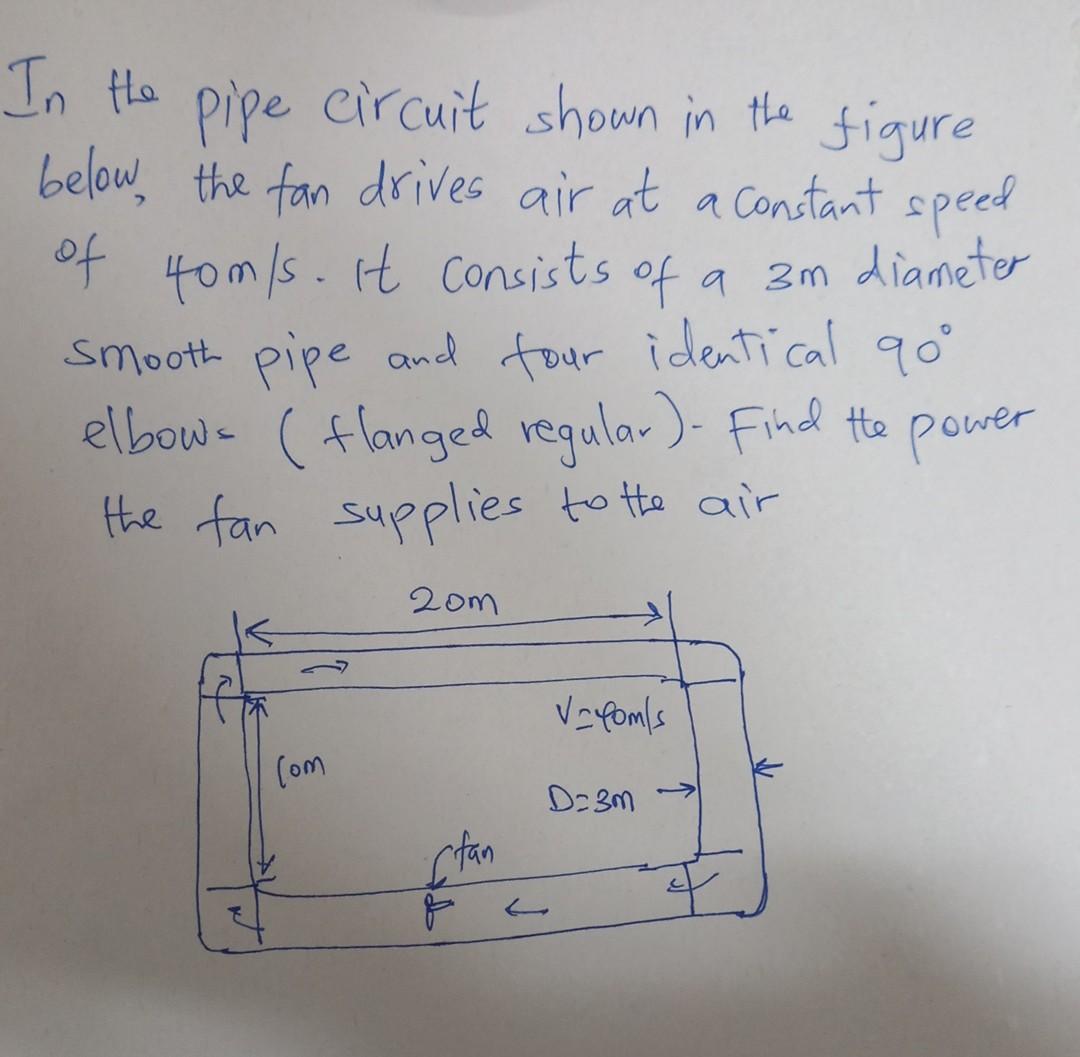 In the pipe circuit shown in the figure
below, the fan drives air at a constant speed
of 40m/s. It consists of a 3m diameter
smooth pipe and four identical 90°
elbows (flanged regular). Find the power
the fan supplies to the air
20m
V=40m/s
10m
D=3m
fan